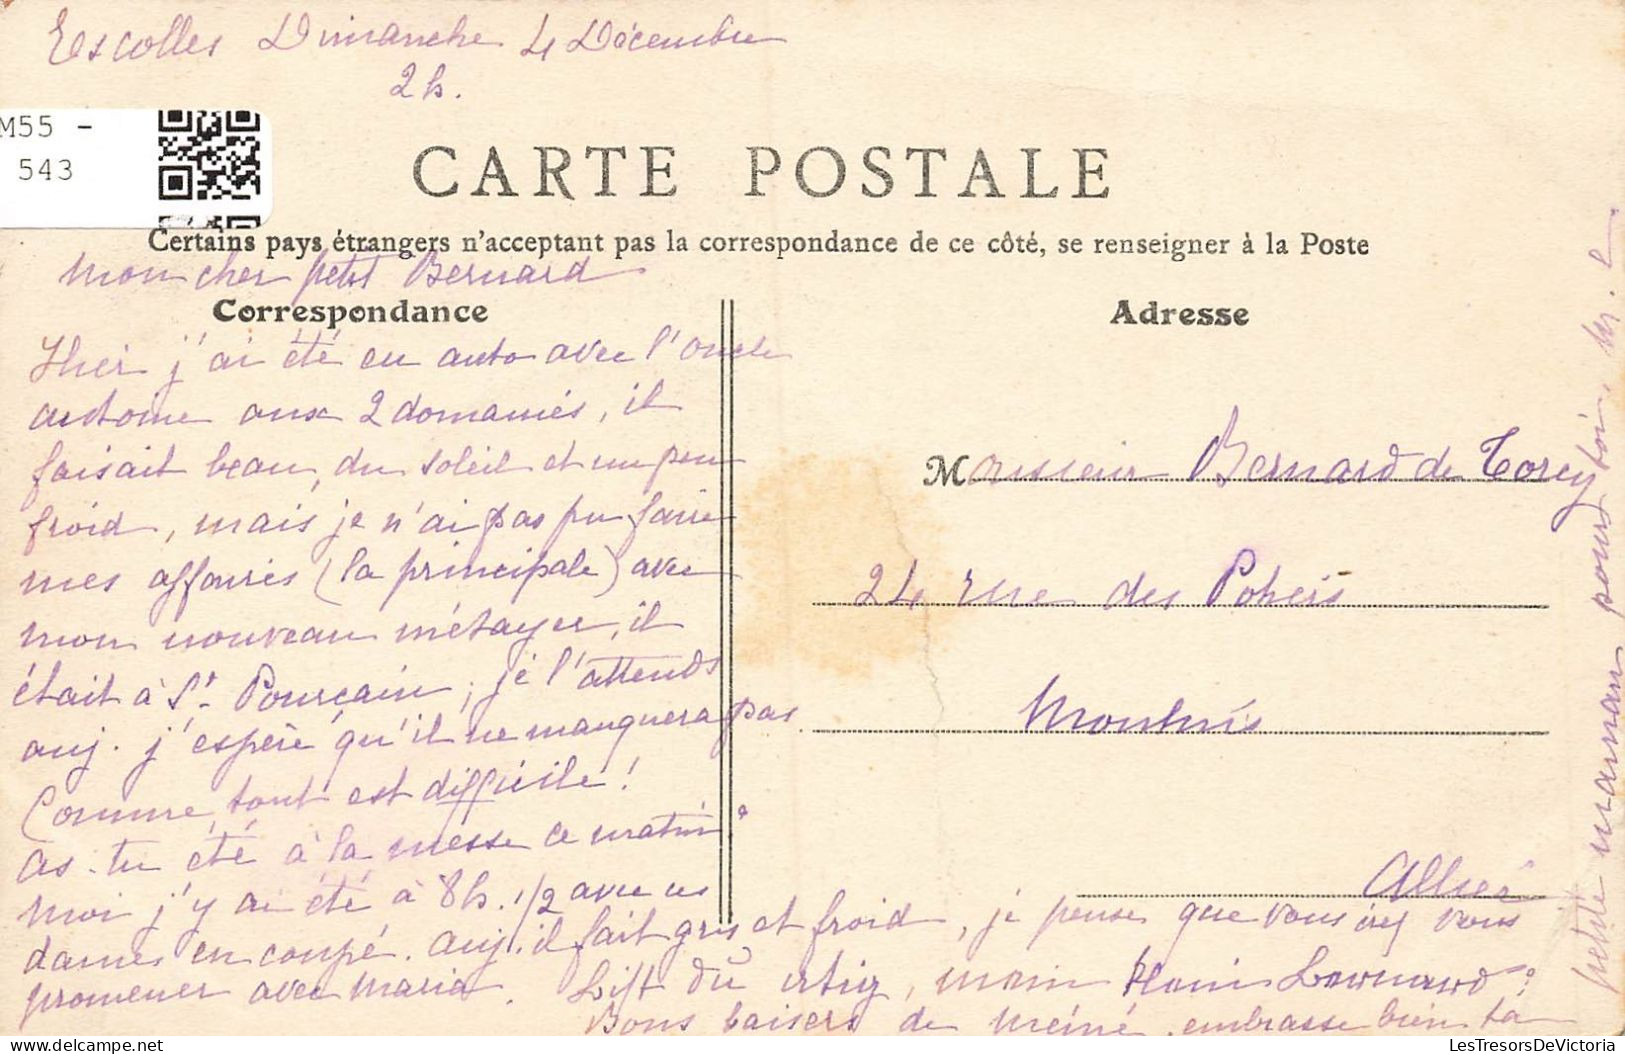 Escolles Dimanche 4 Décembre
2h.
M55 -
543
CARTE POSTALE
Certains pays étrangers n'acceptant pas la correspondance de ce côté, se renseigner à la Poste
Mon cher petit Bernard
Correspondance
Hier j'ai été en auto avec l'oncle
antoine aux 2 domaines, il
faisait beau, du soleil et un peu
froid, mais je n'ai pas pu faire
mes affaires (la principale) avec
mon nouveau métayer, il
était à St Pourçain, je l'attends
auj. j'espère qu'il ne manquera pas
Comme tout est difficile!
as-tu été à la messe ce matin?
moi j'y ai été à 8h. 1/2 avec ces
dames en coupé. auj. il fait gris et froid, je pense que vous vous
promener avec Maria. Bist du artig, mein Bernard?
Bons baisers de Mémé. embrasse bien ta
petite maman pour toi
Adresse
Monsieur Bernard de Torcy
24 rue des Potiers
Moulins
Allier
LesTresorsDeVictoria